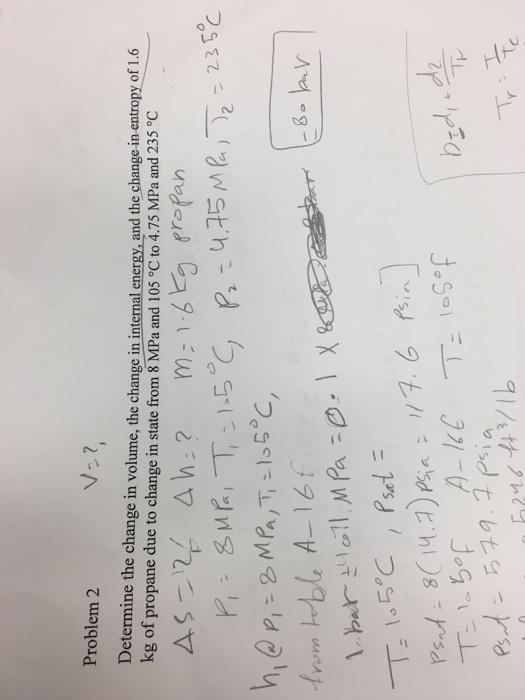 Problem 2 V=?,
Determine the change in volume, the change in internal energy, and the change in entropy of 1.6
kg of propane due to change in state from 8 MPa and 105 °C to 4.75 MPa and 235 °C
Δh=? m=1.6 kg propan
P1 = 8 MPa, T1 = 105°C, P2 = 4.75 MPa, T2 = 235°C
h1 @ P1 = 8 MPa, T1 = 105°C,
from table A-16
1 bar MPa = 0.1 x = 80 bar
T = 105°C, Psat =
Psat = 8(14.7) Psia = 117.6 Psia]
T = 105°F A-16E T = 105°F
Psat = 579.7 Psia
ft3/lb
b=d1+d2/Tr
Tr = T/Tc